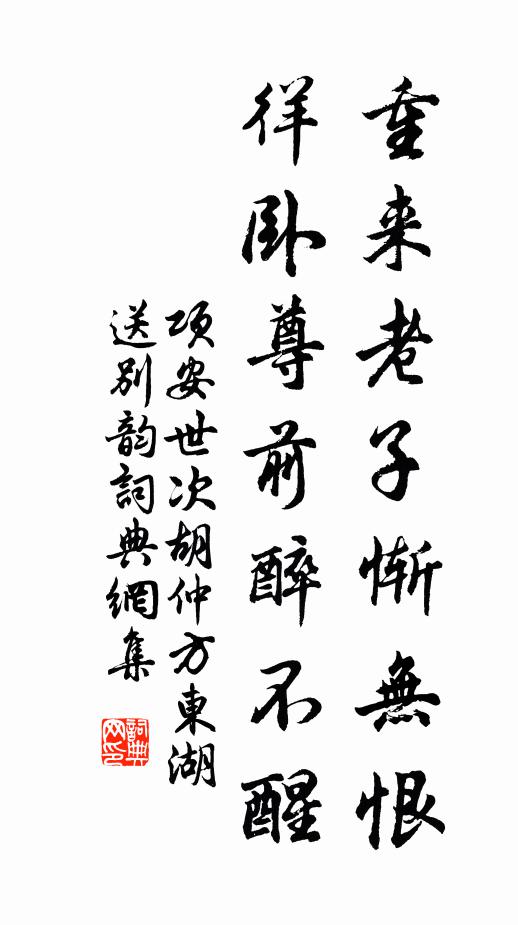 重来老子慚無恨
徉卧尊前醉不醒
項安世次胡仲方東湖
送别韵詞典網集
詞典网印